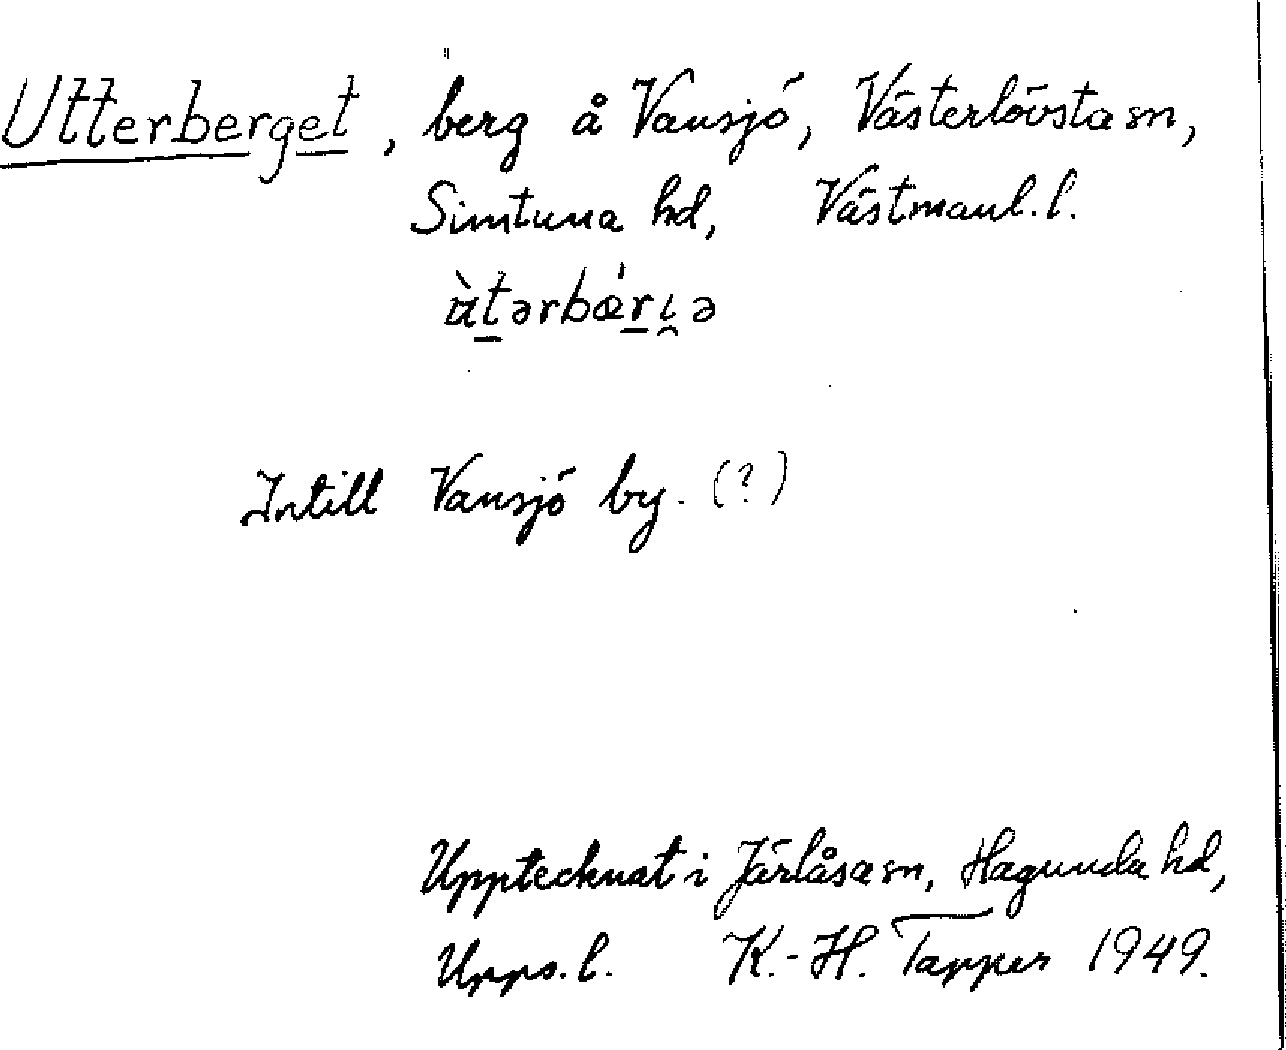 Utterberget, berg å Vansjö, Västerlövsta sn,
Simtuna hd, Västmanl. l.
Intill Vansjö by. (?)
Upptecknat i Järlåsa sn, Hagunda hd,
Upps. l. K.-H. Tapper 1949.